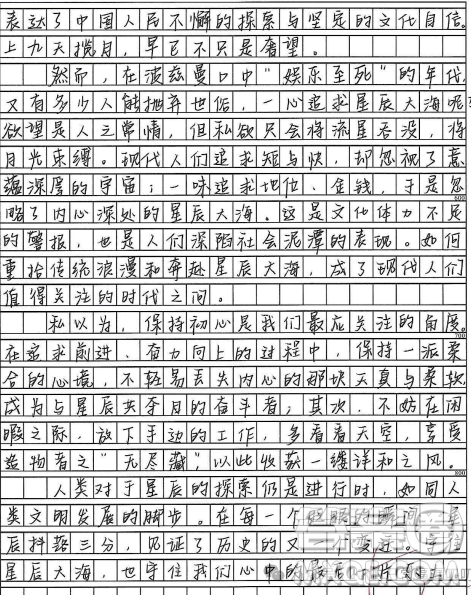 表达了中国人民不懈的探索与坚定的文化自信。
上九天揽月，早已不只是奢望。
然而，在波兹曼口中“娱乐至死”的年代，
又有多少人能抛弃世俗，一心追求星辰大海呢？
欲望是人之常情，但私欲只会将流星吞没，将
目光束缚。现代人们追求短与快，却忽视了意
蕴深厚的宇宙；一味追求地位、金钱，于是忽
600
略了内心深处的星辰大海。这是文化体力不足
的警报，也是人们深陷社会泥潭的表现。如何
重拾传统浪漫和奔赴星辰大海，成了现代人们
值得关注的时代之问。
私以为，保持初心是我们最应关注的角度。
700
在追求前进、奋力向上的过程中，保持一派柔
合的心境，不轻易丢失内心的那块天真与柔软
成为与星辰共夺目的奋斗者；其次，不妨在闲
暇之际，放下手边的工作，多看看天空，享受
造物者之“无尽藏”，以此收获一缕详和之风。
800
人类对于星辰的探索仍是进行时，如同人
类文明发展的脚步。在每一个 的瞬间，星
辰抖落三分，见证了历史的又一个变迁。守住
星辰大海，也守住我们心中的最后一片